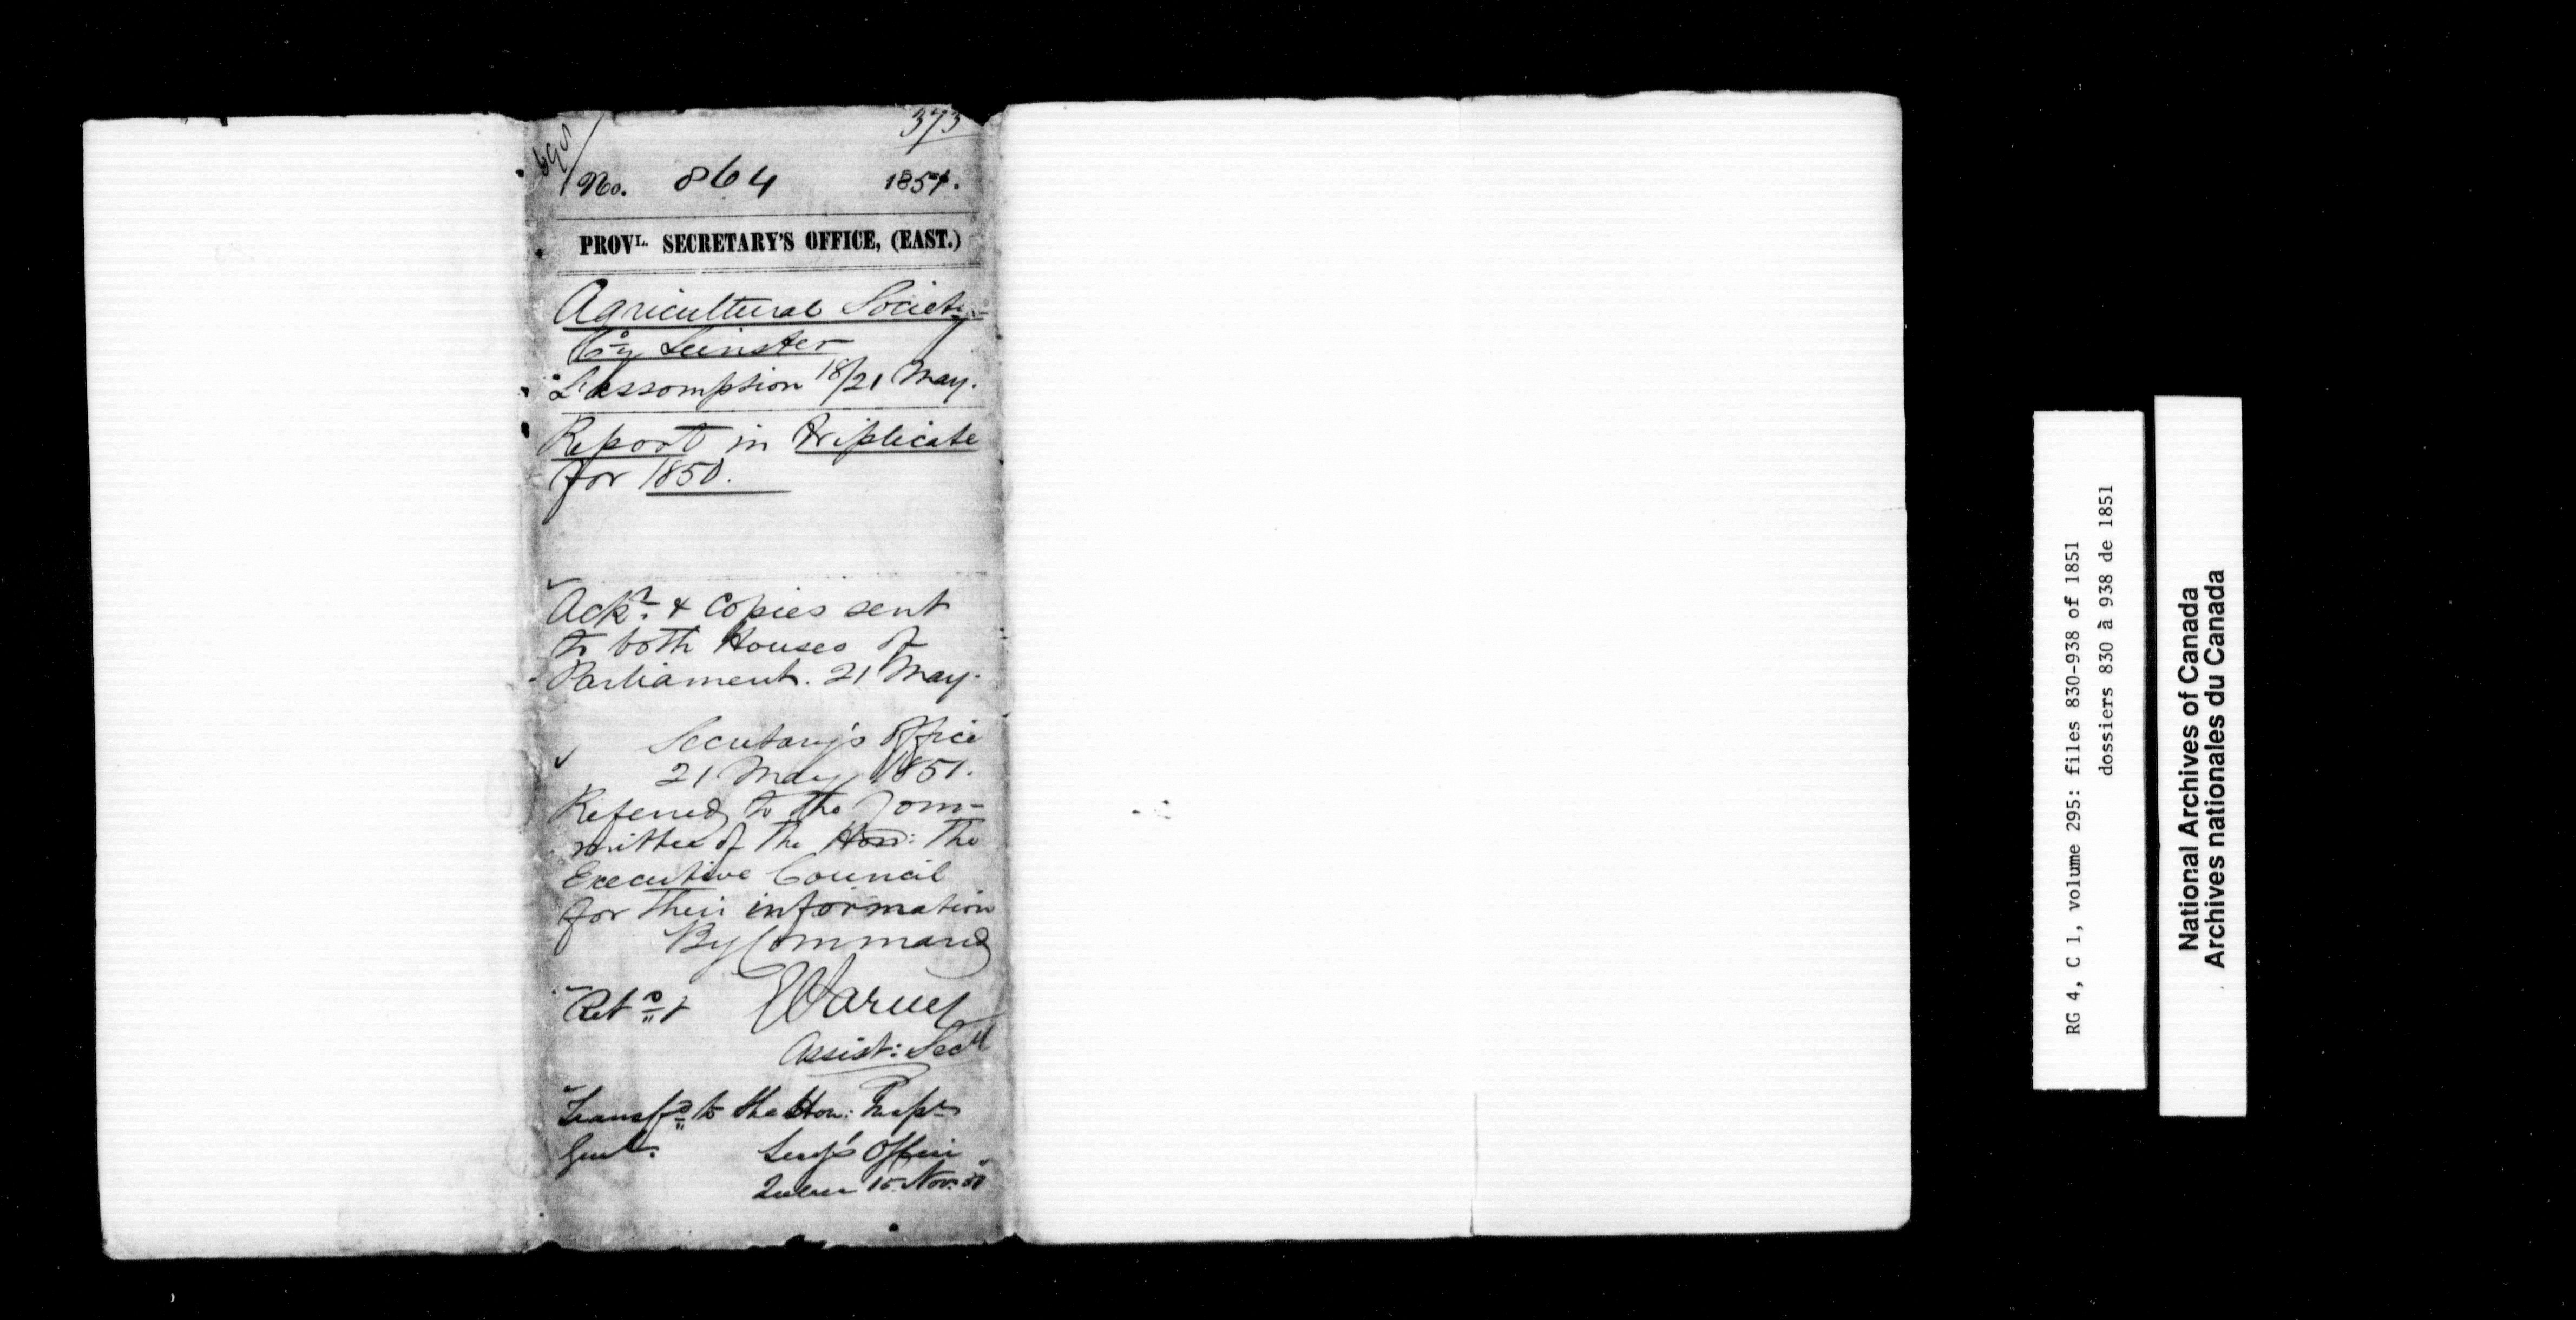 373
698
No. 864 1851.
PROVL. SECRETARY'S OFFICE, (EAST.)
Agricultural Society
Coy Leinster
L'assomption 18/21 May.
Report in triplicate
for 1850.
Ackd. & Copies sent
to both Houses of
Parliament. 21 May.
Secretary's Office
21 May 1851.
Referred to the Com-
mittee of the Hon: The
Executive Council
for their information
By Command
Retd
Assist: Secy
Transfd to the Hon: Inspr
Genl.
Secy's Office
Quebec 15 Nov: 51
RG 4, C 1, volume 295: files 830-938 of 1851
dossiers 830 à 938 de 1851
National Archives of Canada
Archives nationales du Canada